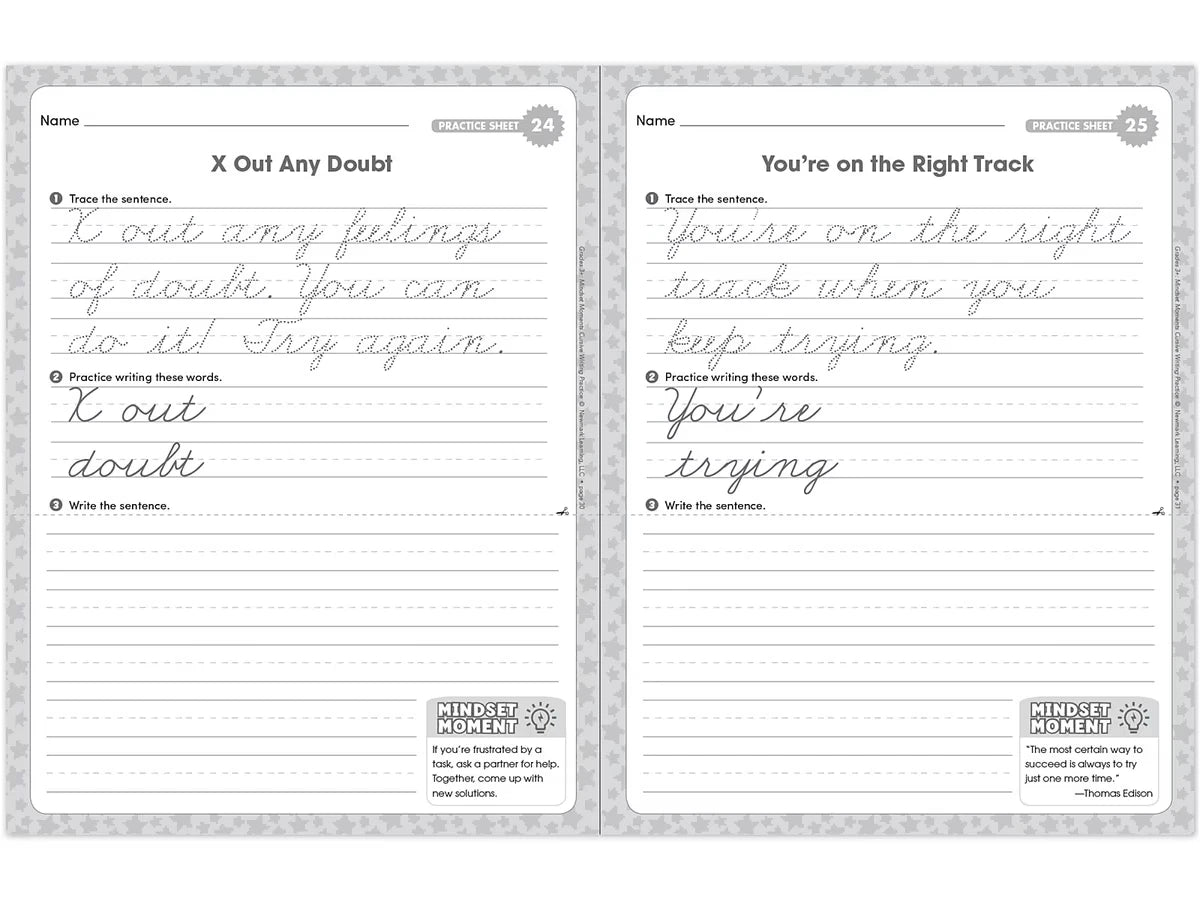 Name
PRACTICE SHEET 24
X Out Any Doubt
1 Trace the sentence.
X out any feelings
of doubt. You can
do it! Try again.
2 Practice writing these words.
X out
doubt
3 Write the sentence.
MINDSET
MOMENT
If you're frustrated by a
task, ask a partner for help.
Together, come up with
new solutions.
Grades 3+ Mindset Moments Cursive Writing Practice © Newmark Learning, LLC • page 30
Name
PRACTICE SHEET 25
You're on the Right Track
1 Trace the sentence.
You're on the right
track when you
keep trying.
2 Practice writing these words.
You're
trying
3 Write the sentence.
MINDSET
MOMENT
"The most certain way to
succeed is always to try
just one more time."
—Thomas Edison
Grades 3+ Mindset Moments Cursive Writing Practice © Newmark Learning, LLC • page 31